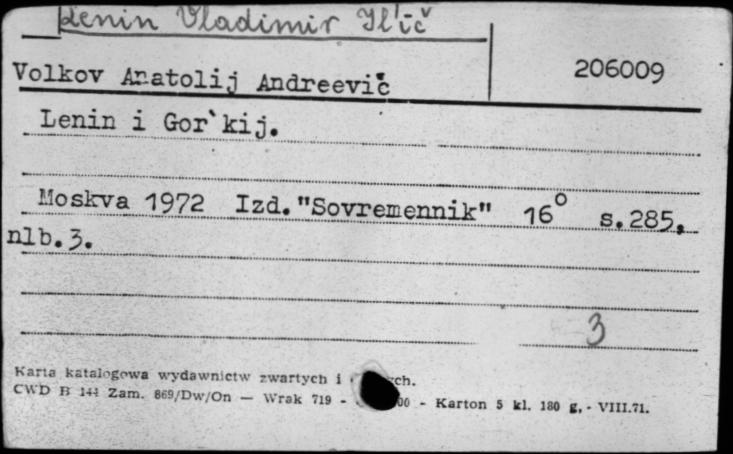 Lenin Vladimir Il'ič
Volkov Anatolij Andreevič
206009
Lenin i Gor`kij.
Moskva 1972 Izd. "Sovremennik" 16° s.285,
nlb.3.
3
Karta katalogowa wydawnictw zwartych i
CWD B 144 Zam. 869/Dw/On — Wrak 719 - 00 - Karton 5 kl. 180 g, - VIII.71.